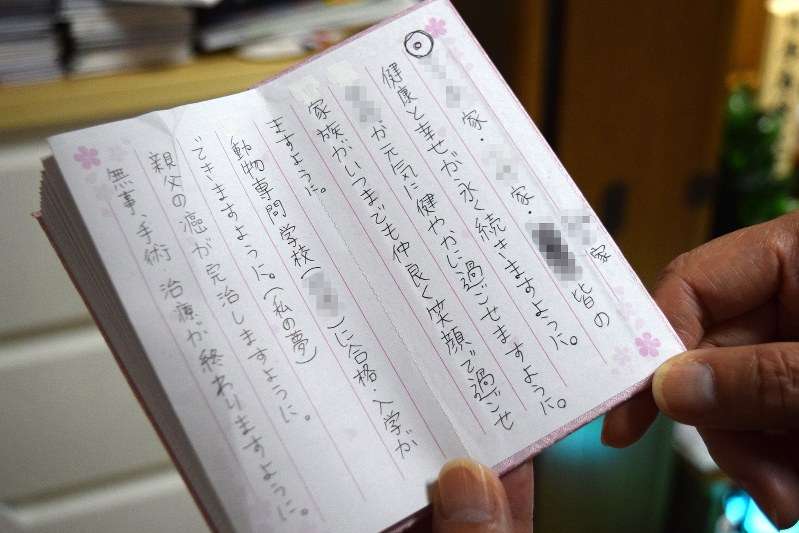 家・家・家
皆の
健康と幸せが永く続きますように。
が元気に健やかに過ごせますように。
家族がいつまでも仲良く笑顔で過ごせ
ますように。
動物専門学校()に合格・入学が
できますように。(私の夢)
親父の癌が完治しますように。
無事、手術 治療が終わりますように。